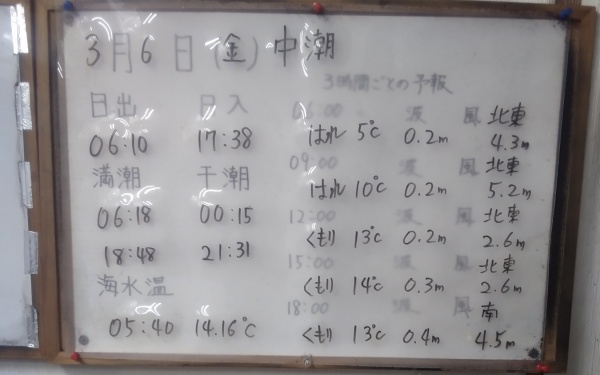 3月6日(金)中潮
3時間ごとの予報
日出 日入
06:10 17:38
満潮 干潮
06:18 00:15
18:48 21:31
海水温
05:40 14.16℃
06:00 波 風 北東
はれ 5℃ 0.2m 4.3m
09:00 波 風 北東
はれ 10℃ 0.2m 5.2m
12:00 波 風 北東
くもり 13℃ 0.2m 2.6m
15:00 波 風 北東
くもり 14℃ 0.3m 2.6m
18:00 波 風 南
くもり 13℃ 0.4m 4.5m